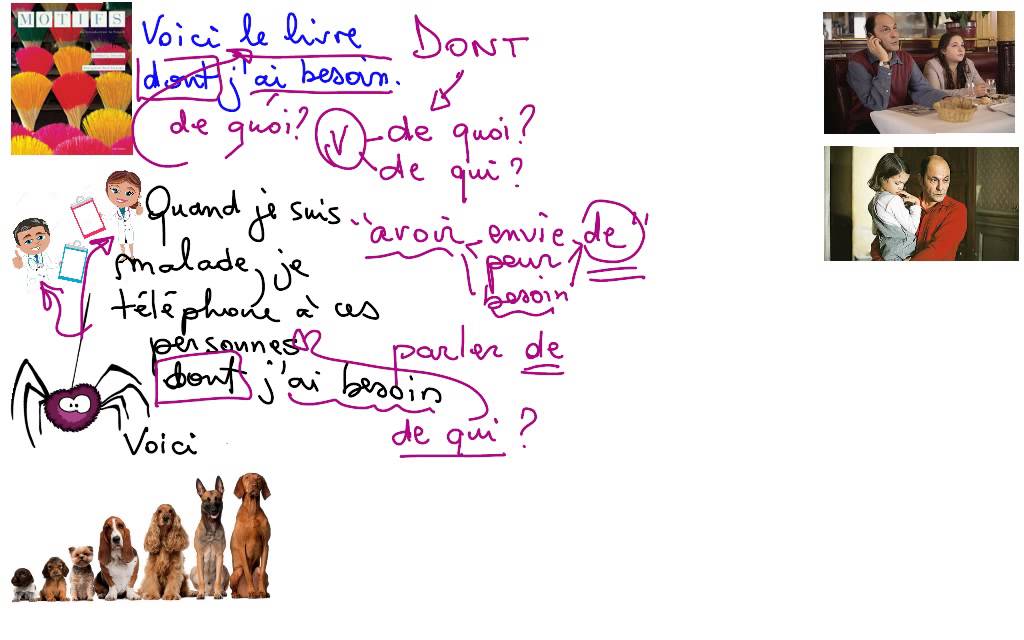 MOTIFS
Voici le livre
dont j'ai besoin.
de quoi?
DONT
V de quoi?
de qui?
Quand je suis
malade, je
téléphone à ces
personnes
dont j'ai besoin
de qui ?
"avoir envie de"
peur
besoin
parler de
Voici